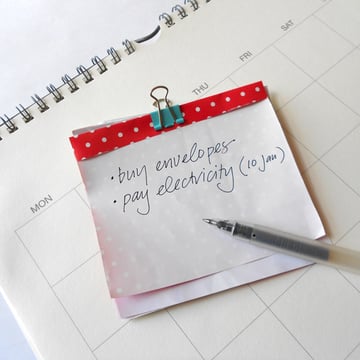 MON
THU
FRI
SAT
• buy envelopes
• pay electricity (10 Jan)